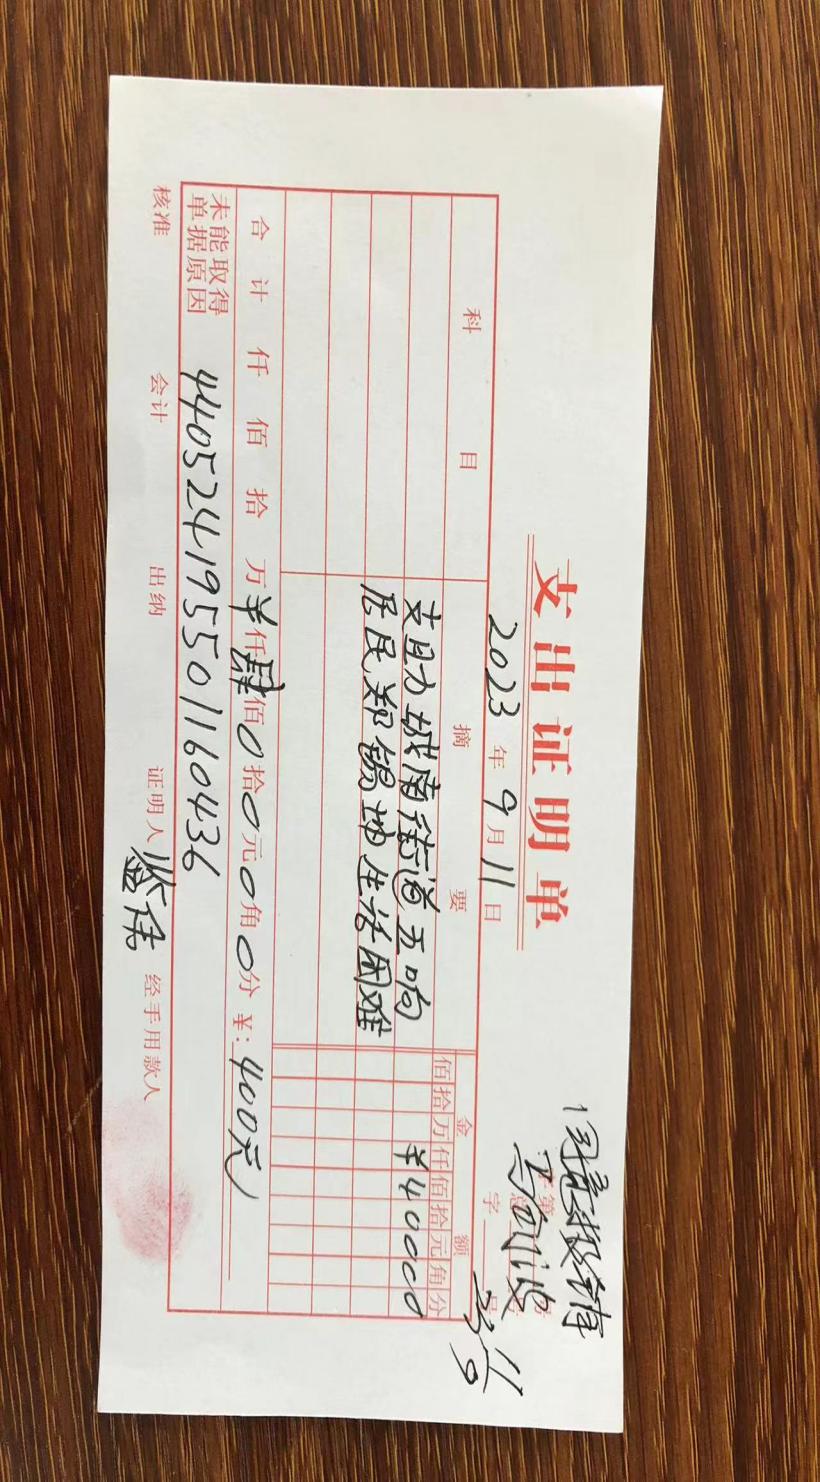 支出证明单
2023年9月11日
同意报销
第 号
字 号
科目 摘要 金额
佰拾万仟佰拾元角分
支助城南街道五响 ¥40000
居民郑锡坤生活困难
合计 仟 佰 拾 万¥仟肆佰0拾0元0角0分 ¥:400元
未能取得
单据原因 440524195501160436
核准 会计 出纳 证明人 经手用款人